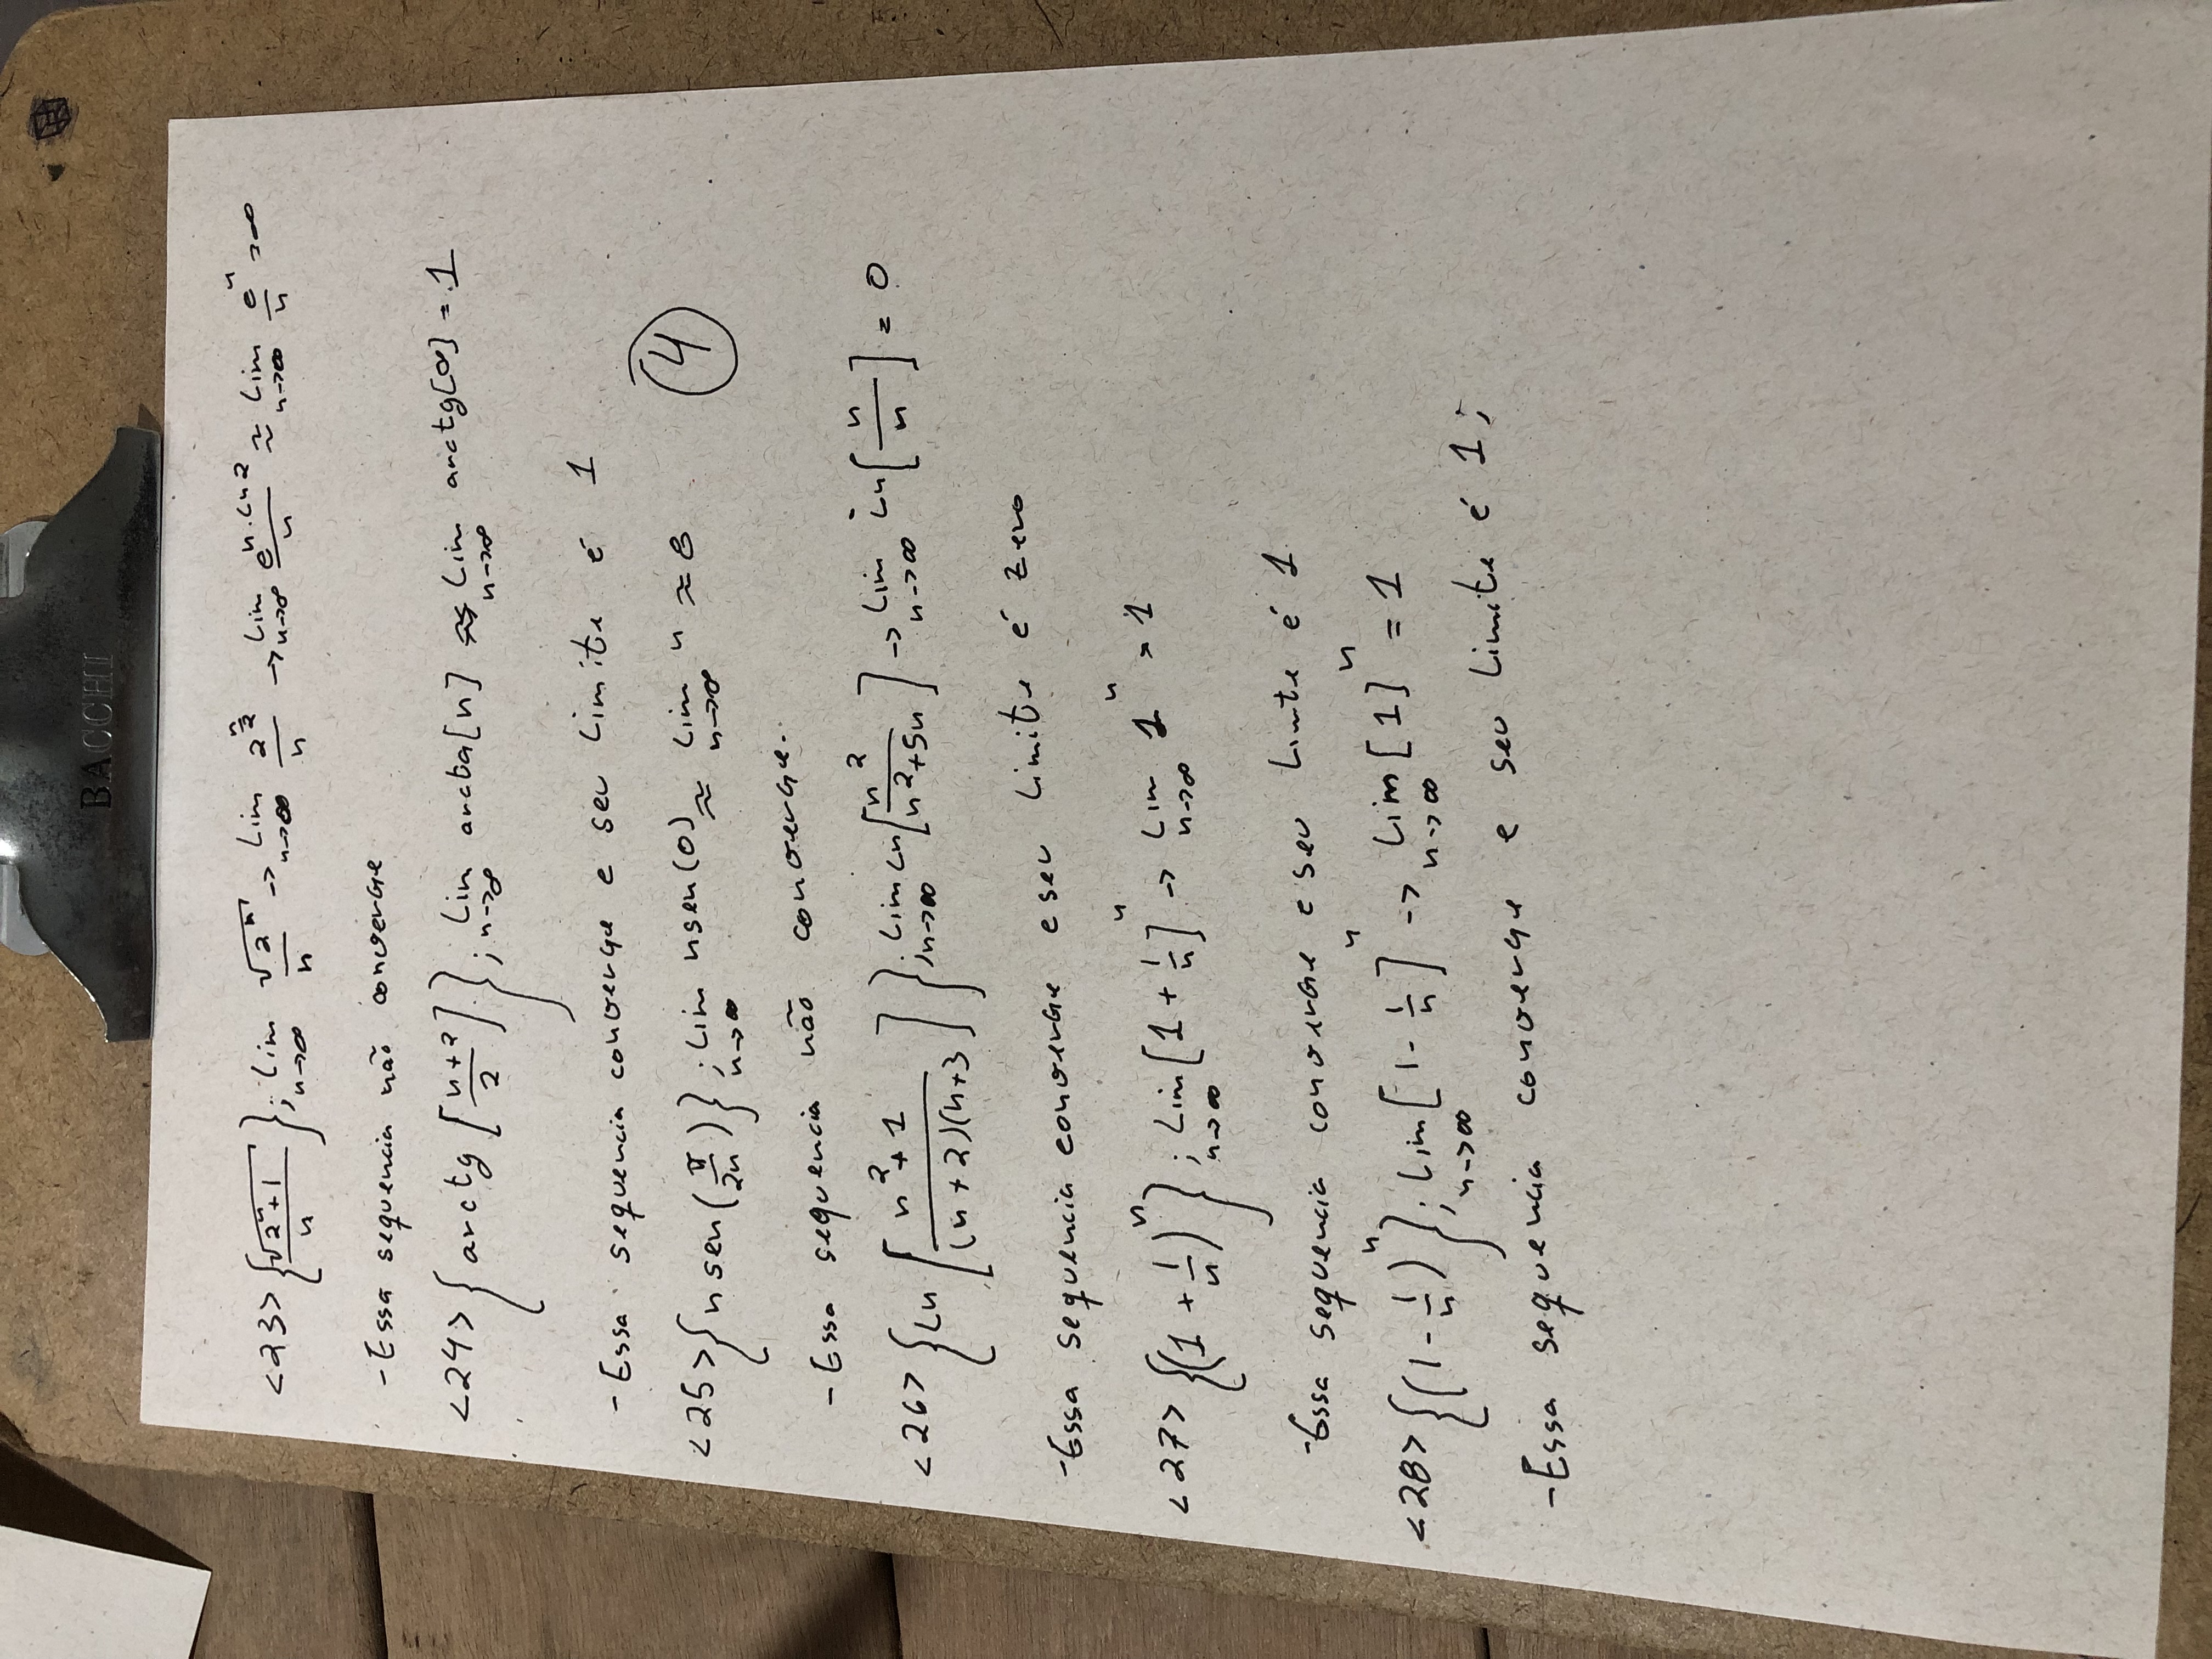 BACCHI
<23> {√(2ⁿ+1)/n}; lim n→∞ √(2ⁿ)/n → lim n→∞ 2^(n/2)/n → lim n→∞ e^(n.Ln2)/n ≈ lim n→∞ eⁿ/n = ∞
-Essa sequencia não converge
<24> {arctg [(n+2)/2]}; lim n→∞ arctg[n] ≈ Lim n→∞ arctg[∞] = 1
-Essa sequencia converge e seu Limite é 1
<25> {n sen(π/2n)}; lim n→∞ nsen(0) ≈ lim n→∞ n ≈ ∞
4
-Essa sequencia não converge.
<26> {Ln [(n²+1)/((n+2)(n+3]}; lim n→∞ Ln[n²/(n²+5n)] → Lim n→∞ Ln[n/n] = 0
-Essa sequencia converge e seu Limite é zero
<27> {(1+1/n)ⁿ}; Lim n→∞ [1+1/n]ⁿ → Lim n→∞ 1ⁿ = 1
-Essa sequencia converge e seu Limite é 1
<28> {(1-1/n)ⁿ}; Lim n→∞ [1-1/n]ⁿ → Lim n→∞ [1]ⁿ = 1
-Essa sequencia converge e seu Limite é 1;